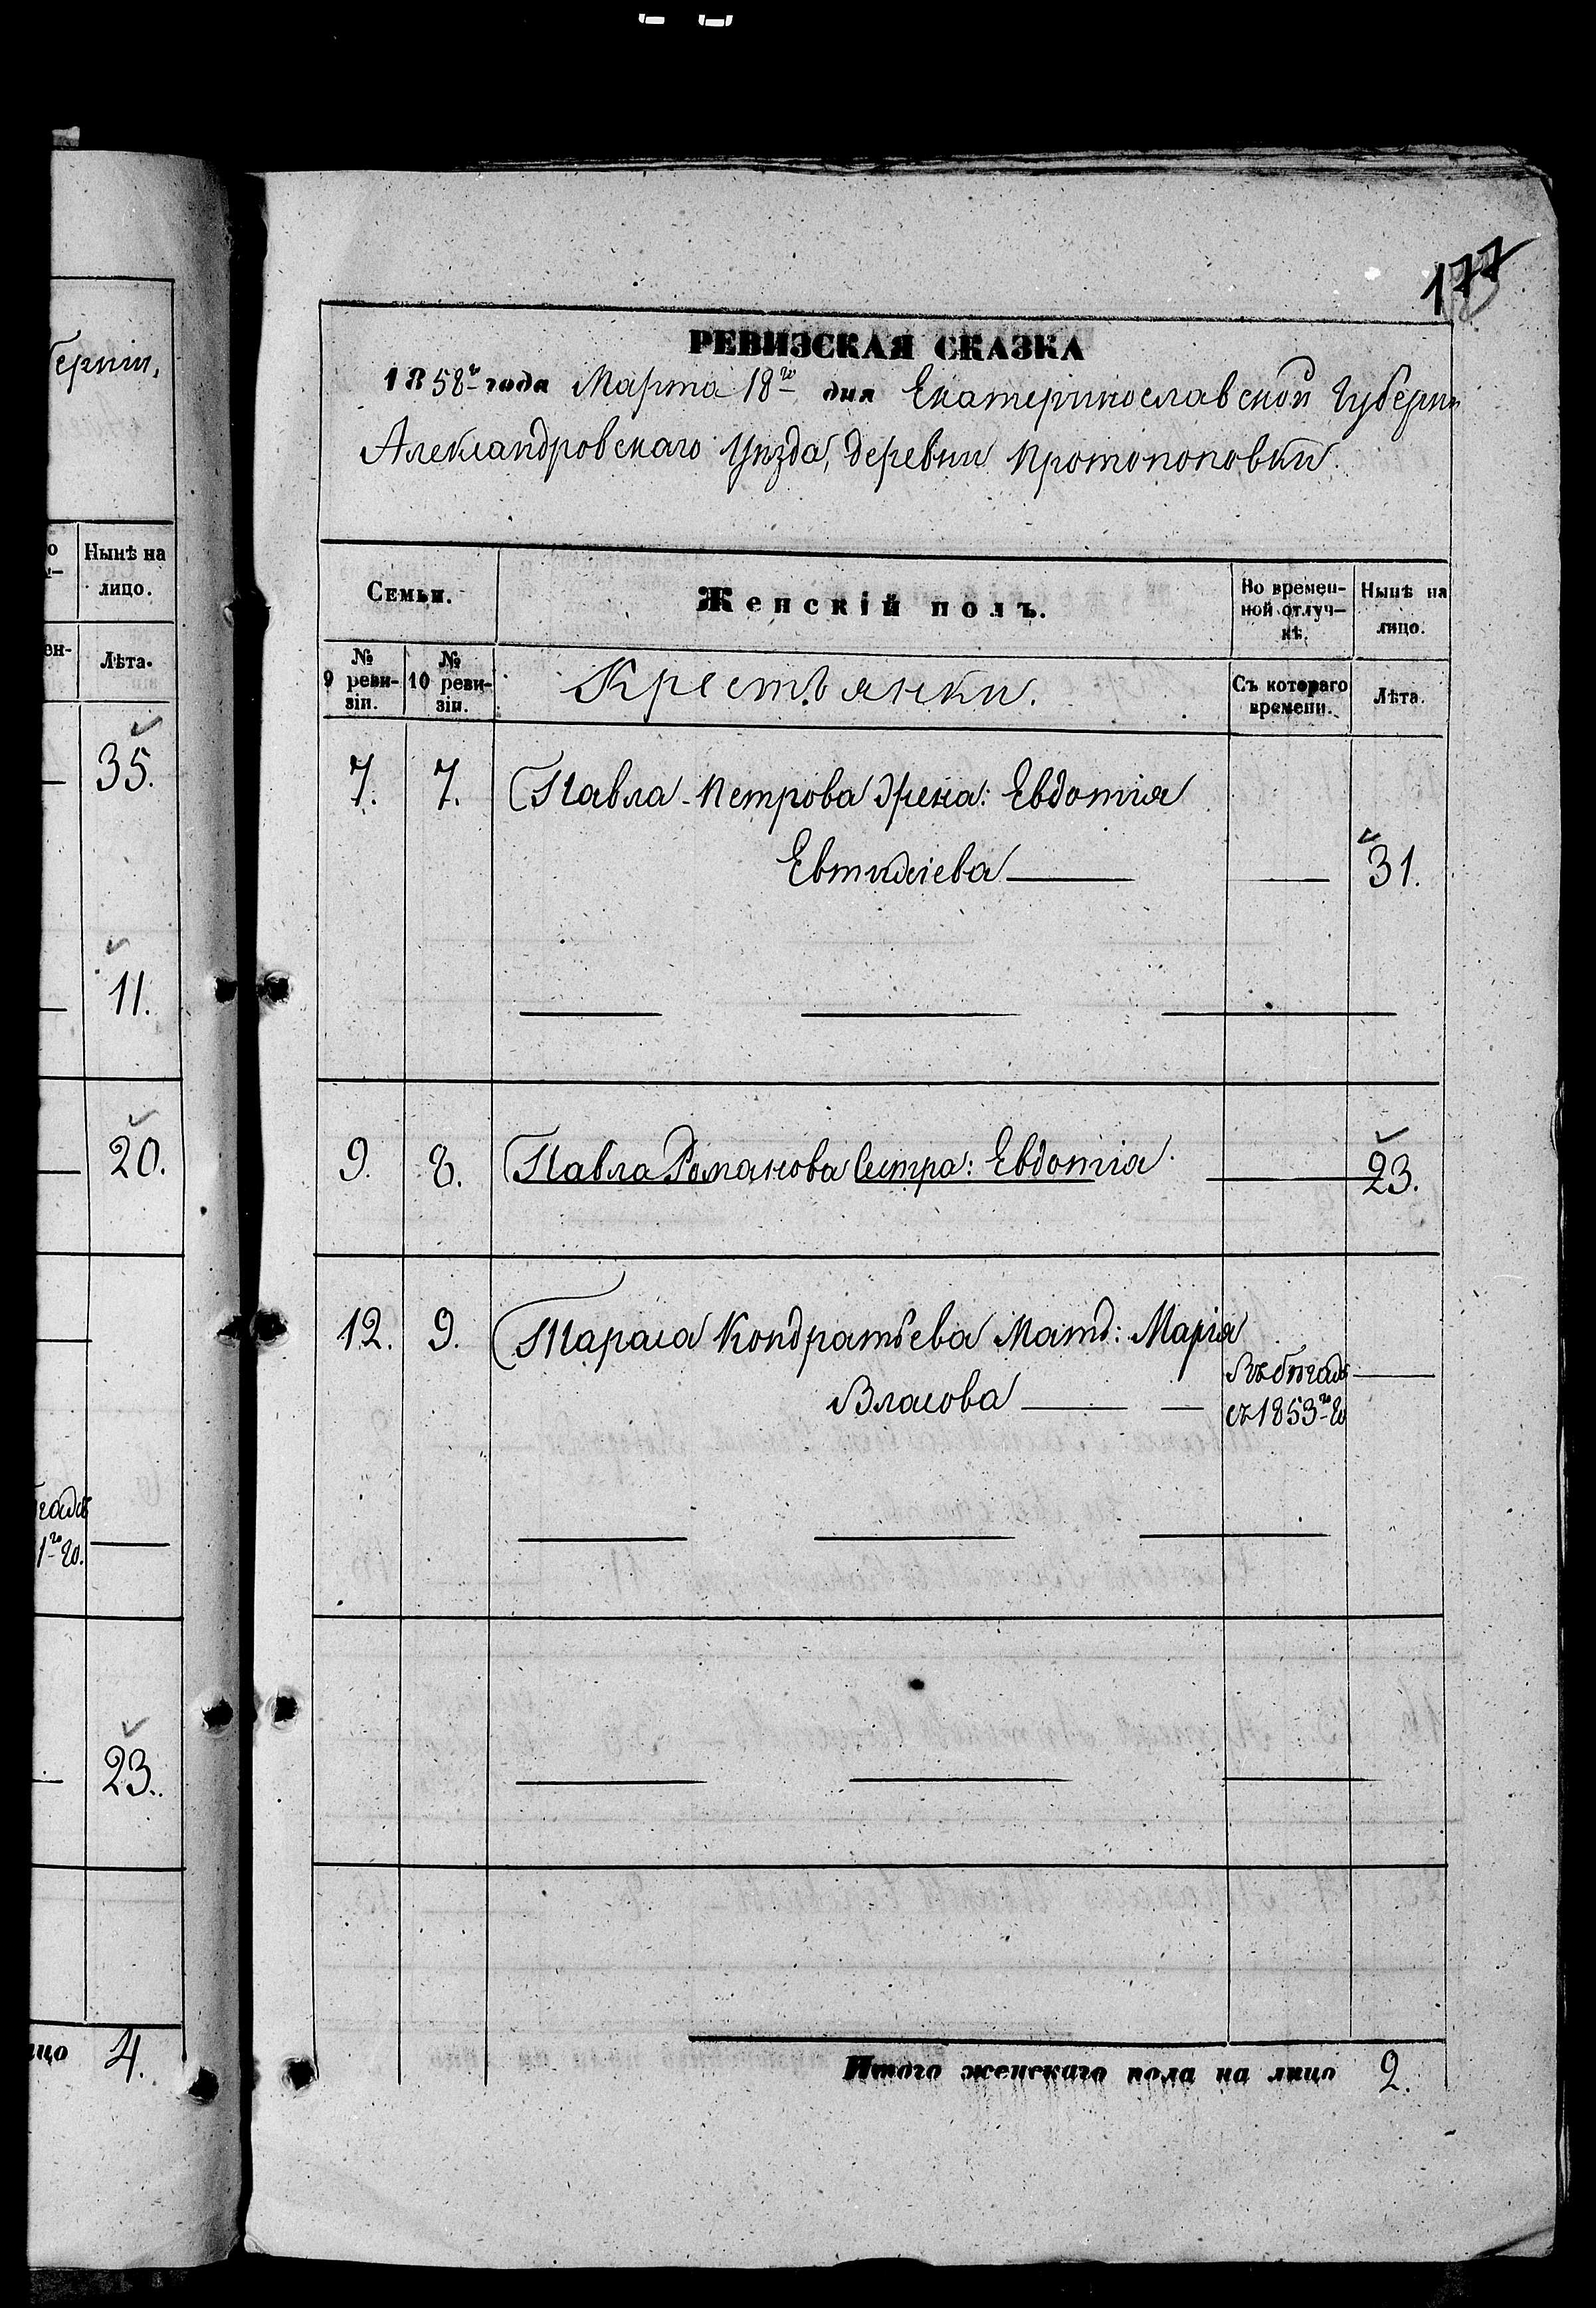 берніи,
Нынѣ на
лицо.
Лѣта.
35.
11.
20.
гадѣ
1го го.
23.
4.
177
РЕВИЗСКАЯ СКАЗКА
1858го года Марта 18го дня Екатеринославской Губерніи
Александровскаго Уѣзда, деревни Протопоповки.
Семьи.
Женскій полъ.
Во времен-
ной отлуч-
кѣ.
Нынѣ на
лицо.
№
9 реви-
зіи.
№
10 реви-
зіи.
Крестьянки.
Съ котораго
времени.
Лѣта.
7. 7. Павла Петрова жена: Евдотія
Евтихіева — — 31.
9. 8. Павла Романова Сестра: Евдотія — 23.
12. 9. Тараса Кондратьева Мать: Марія
Власова — — Въ бѣгахъ —
съ 1853го го
Итого женскаго пола на лицо 2.